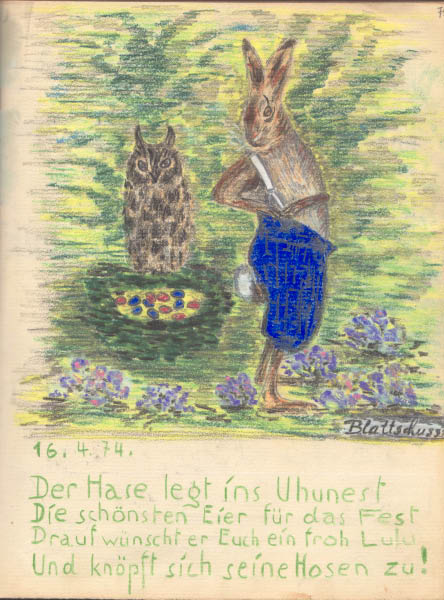 Blattschuss
16. 4. 74.
Der Hase legt ins Uhunest
Die schönsten Eier für das Fest
Drauf wünscht er Euch ein froh Lulu
Und knöpft sich seine Hosen zu!